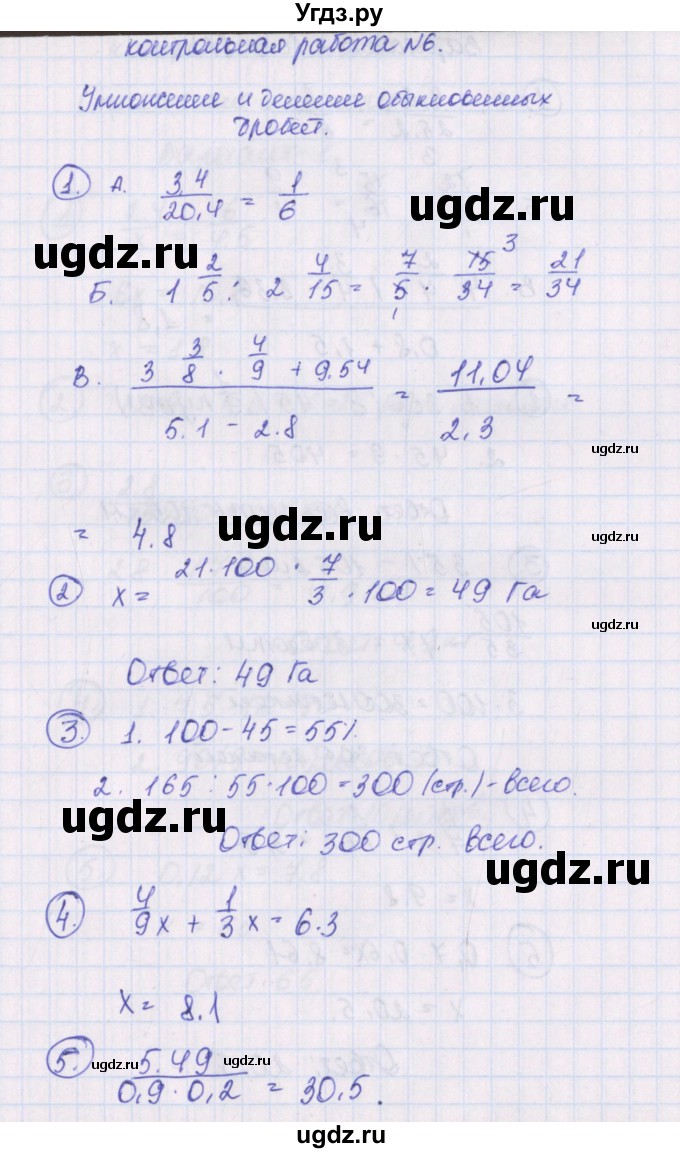 Угдз.ру
контрольная работа №6.
Умножение и деление обыкновенных
дробей.
1. А. 3,4/20,4 = 1/6
ugdz.ru
ugdz.ru
Б. 1 2/5 : 2 4/15 = 7/5 · 15/34 = 21/34
1 3
В. (3 3/8 · 4/9 + 9.54)/(5.1 - 2.8) = 11,04/2,3 =
ugdz.ru
= 4.8
ugdz.ru
ugdz.ru
2 x = 21·100 · 7/3 · 100 = 49 Га
ugdz.ru
Ответ: 49 Га
3. 1. 100-45=55%.
2. 165 : 55·100=300 (стр.)-всего.
ugdz.ru
Ответ: 300 стр. всего.
ugdz.ru
4. 4/9x + 1/3x = 6.3
x = 8.1
5. 5.49/(0,9·0,2) = 30,5.
ugdz.ru
ugdz.ru
ugdz.ru
ugdz.ru